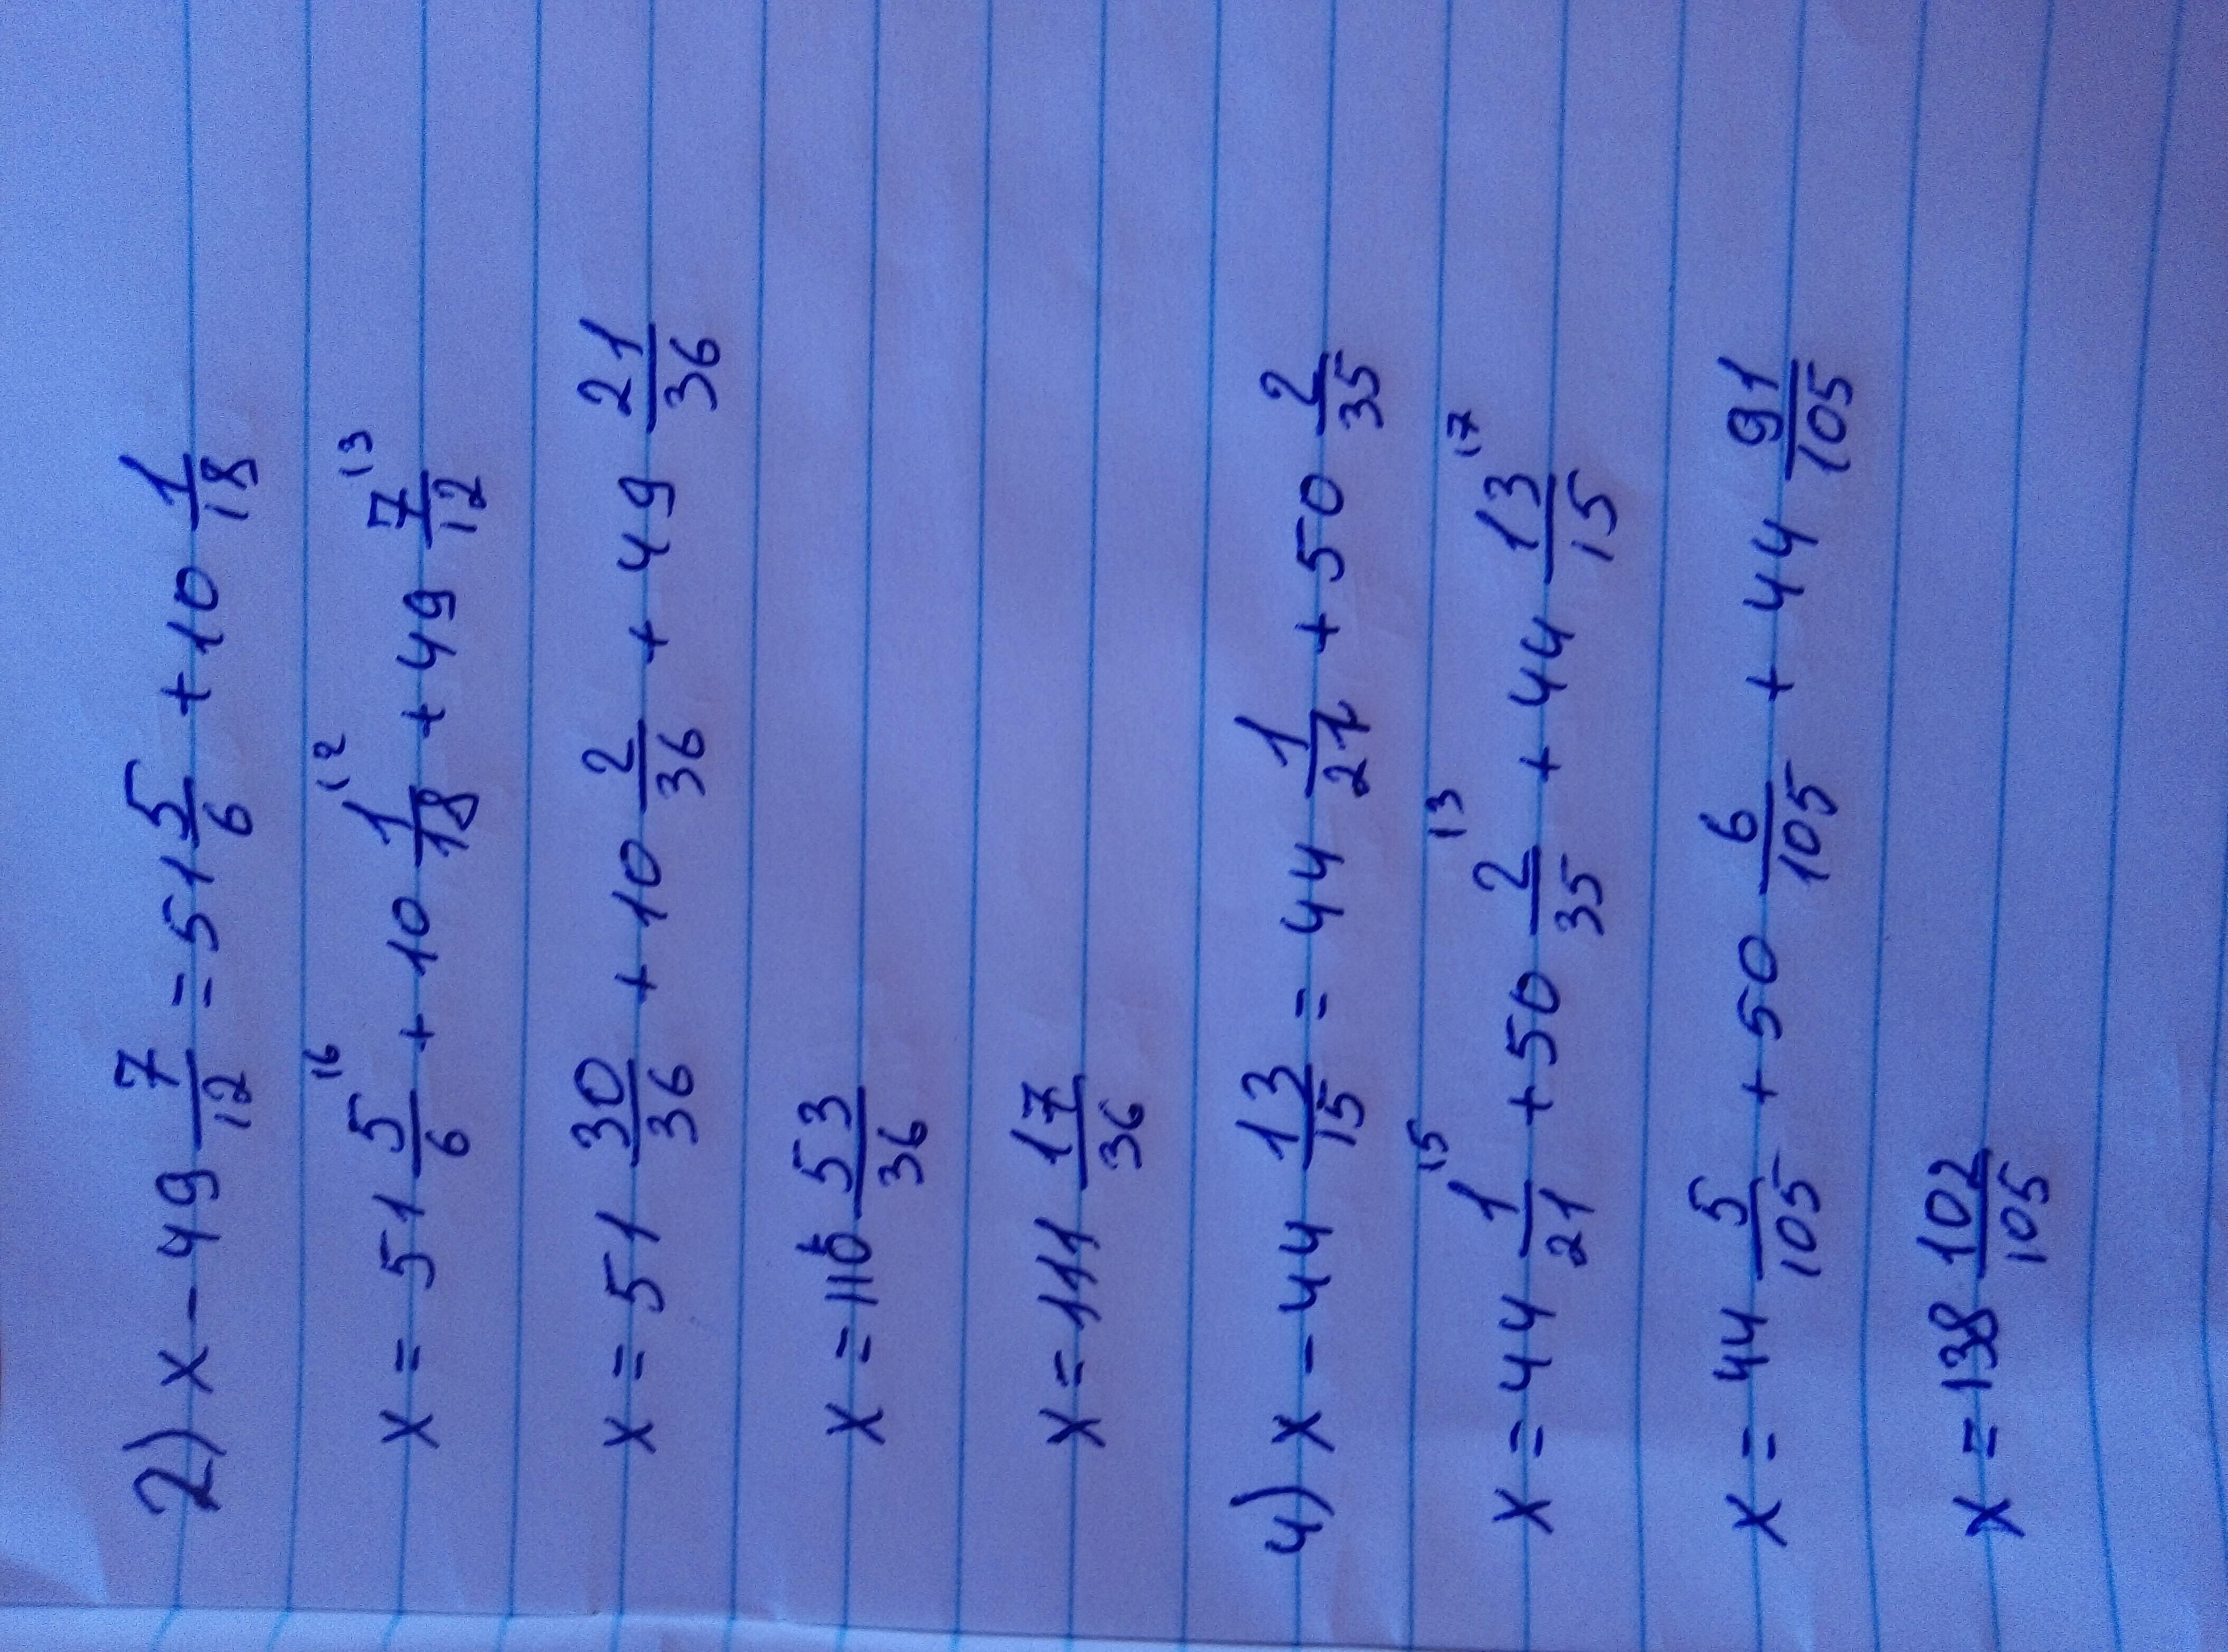 2) x - 49 7/12 = 51 5/6 + 10 1/18
x = 51 5/6 |6 + 10 1/18 |2 + 49 7/12 |3
x = 51 30/36 + 10 2/36 + 49 21/36
x = 110 53/36
x = 111 17/36
4) x - 44 13/15 = 44 1/21 + 50 2/35
x = 44 1/21 |5 + 50 2/35 |3 + 44 13/15 |7
x = 44 5/105 + 50 6/105 + 44 91/105
x = 138 102/105